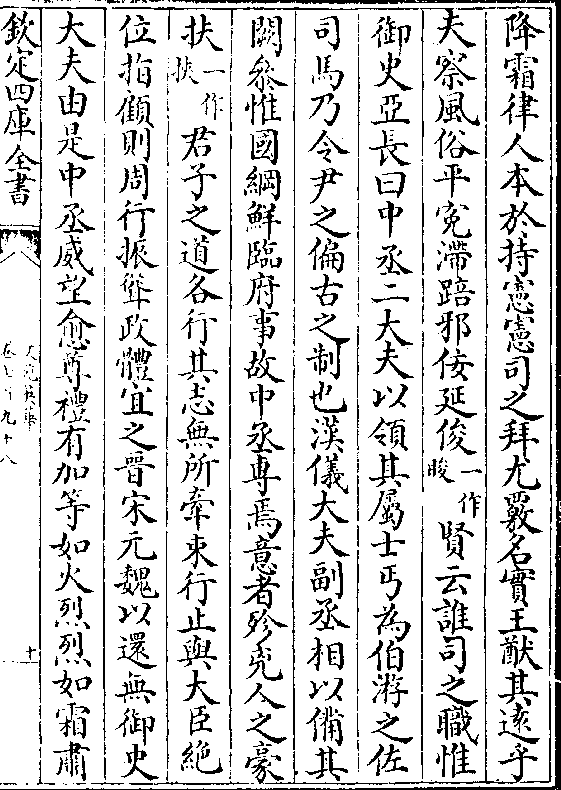 降霜律人本於持憲憲司之拜尤覈名實王猷其遠乎
夫察風俗平寃滯踣邪佞延俊一作畯賢云誰司之職惟
御史亞長曰中丞二大夫以領其屬士丐為伯游之佐
司馬乃令尹之偏古之制也漢儀大夫副丞相以備其
闕叅惟國綱鮮臨府事故中丞專焉意者殄兇人之豪
扶一作挾君子之道各行其志無所牽束行止與大臣絶
位指顧則周行振聳政體宜之晉宋元魏以還無御史
大夫由是中丞威望愈尊禮有加等如火烈烈如霜肅
欽定四庫全書
文苑英華
卷七百九十八
十一